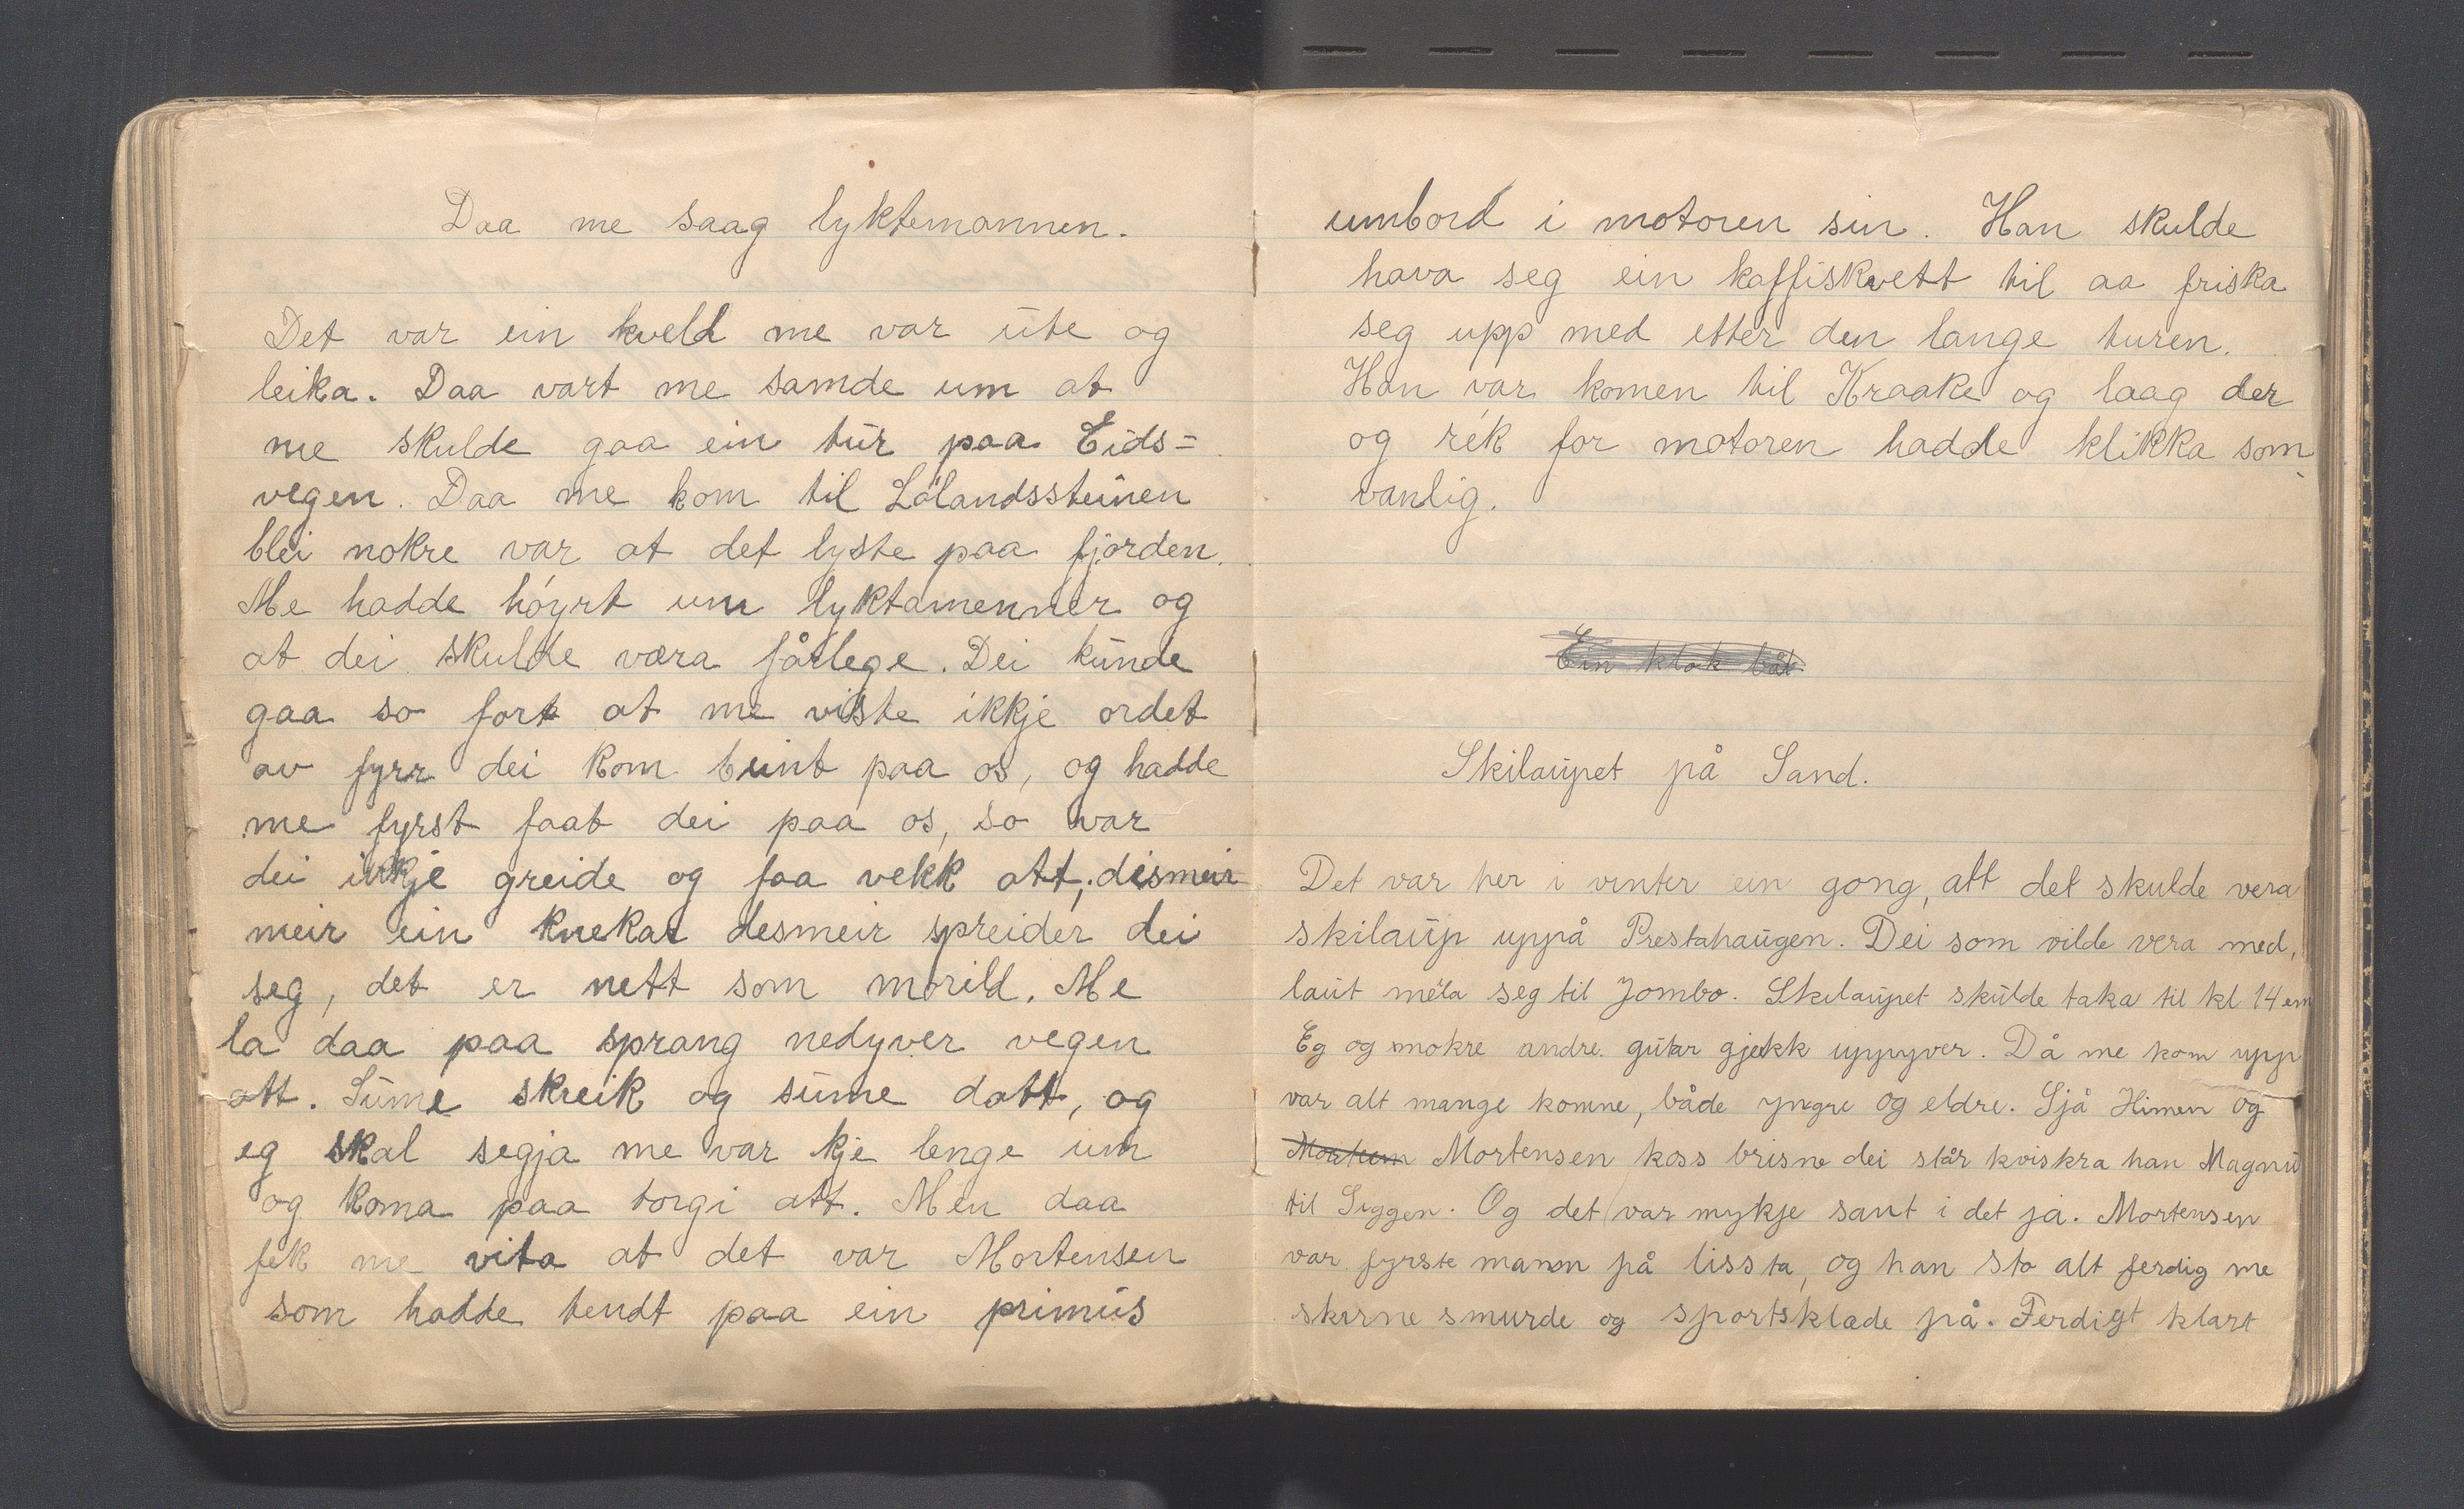 Daa me saag lyktemannen.
Det var ein kveld me var ute og
leika. Daa vart me samde um at
me skulde gaa ein tur paa Eids=
vegen. Daa me kom til Lølandssteinen
blei nokre var at det lyste paa fjorden.
Me hadde høyrt um lyktamenner og
at dei skulde væra fårlege. Dei kunde
gaa so fort at me viste ikkje ordet
av fyrr dei kom beint paa os, og hadde
me fyrst faat dei paa os, so var
dei ikkje greide og faa vekk att, dismeir
meir ein knekar desmeir spreider dei
seg, det er nett som morild. Me
la daa paa sprang nedyver vegen
att. Sume skreik og sume datt, og
eg skal segja me var kje lenge um
og koma paa torgi att. Men daa
fek me vita at det var Mortensen
som hadde tendt paa ein primus
umbord i motoren sin. Han skulde
hava seg ein kaffiskvett til aa friska
seg upp med etter den lange turen.
Han var komen til Kraake og laag der
og rék for motoren hadde klikka som
vanlig.
Ein klok båt.
Skilaupet på Sand.
Det var her i vinter ein gong, att det skulde vera
skilaup uppå Prestahaugen. Dei som vilde vera med,
laut mela seg til Jombo. Skilaupet skulde taka til kl 14 em
Eg og nokre andre gutar gjekk uppyver. Då me kom upp
var alt mange komne, både yngre og eldre. Sjå Himen og
Mortensen koss brisne dei står kviskra han Magnu
til Siggen. Og det var mykje sant i det ja. Mortensen
var fyrste mann på lissta, og han sto alt ferdig me
skirne smurde og sportsklæde på. Ferdigt klart